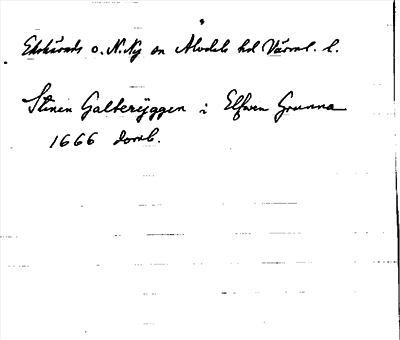 Ekshärads o. N. Ny sn Älvdals hd Värml. l.
Stenen Galterÿggen i Elfwen Grunna
1666 domb.